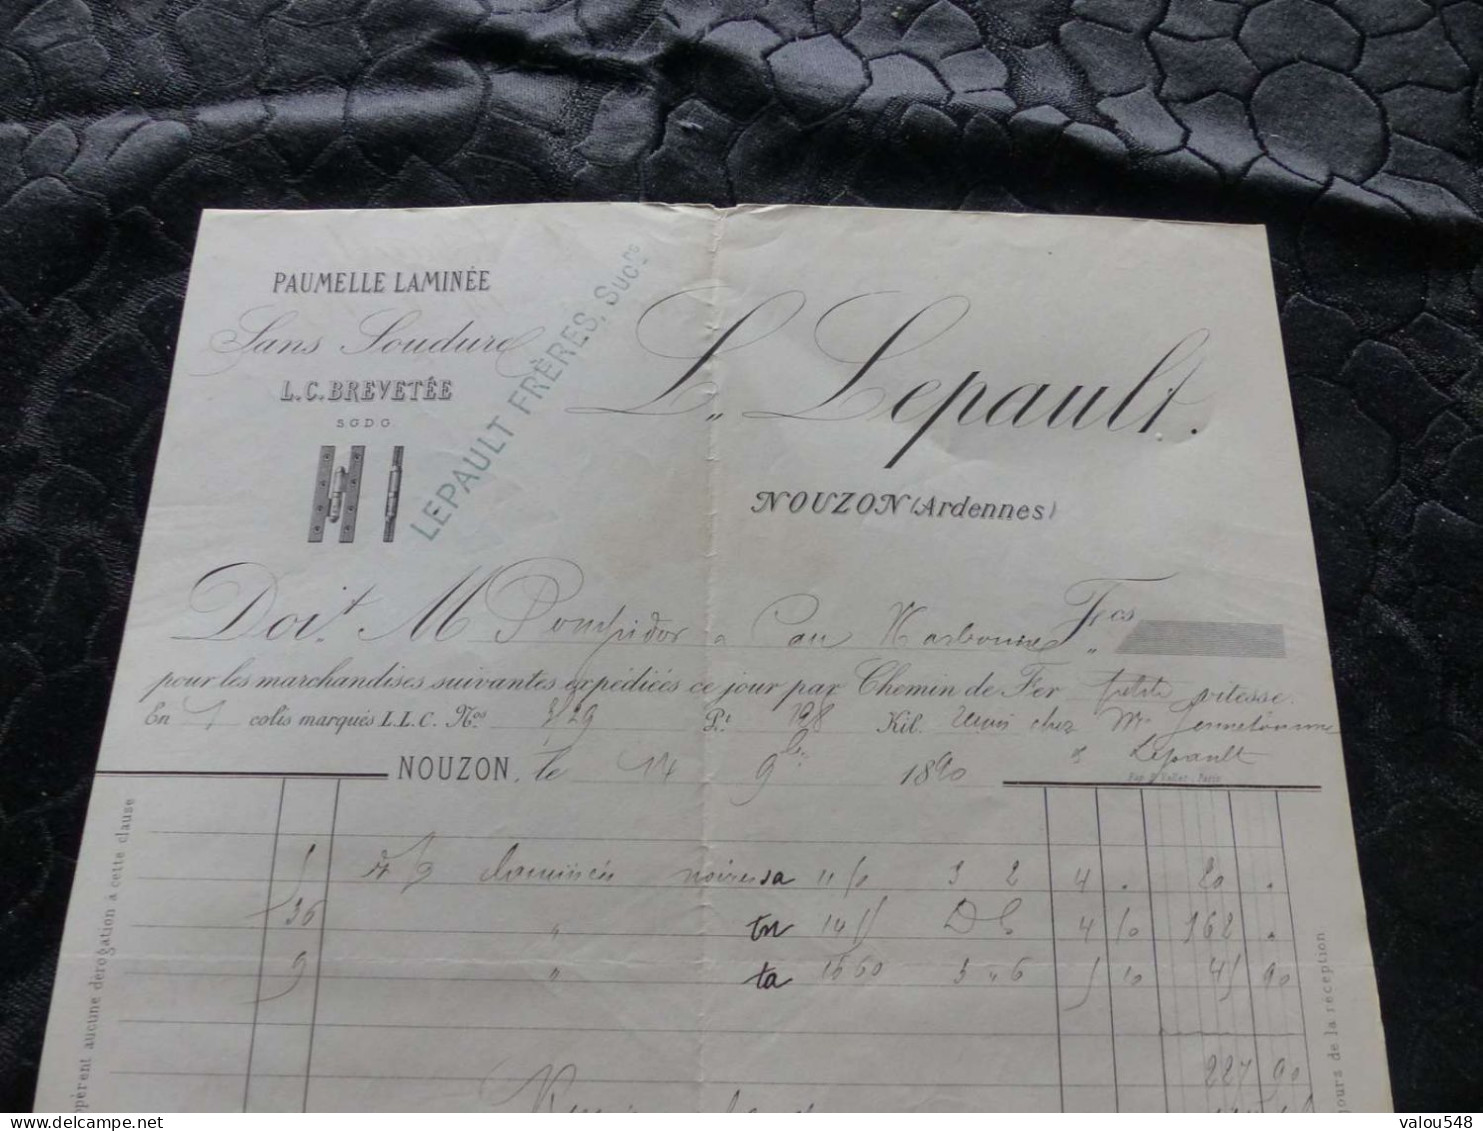 PAUMELLE LAMINÉE
Sans Soudure
L.C. BREVETÉE
S.G.D.G
LEPAULT FRÈRES, Sucrs
L. Lepault.
NOUZON (Ardennes)
Doit M Pompidor a Pau Narbonne Fcos
pour les marchandises suivantes expédiées ce jour par Chemin de Fer petite vitesse.
En colis marqués L.L.C. Nos 3/29 Pt 198 Kil. remis chez Mr
Lepault
NOUZON, le 14 9bre 1890
laminées noires sa 11/0 3 2 4 . 20 .
36 " tn 14 4 162 .
9 " ta 1560 3 " 6 5 10 45 90
227 90
opèrent aucune dérogation à cette clause
jours de la réception
valou548